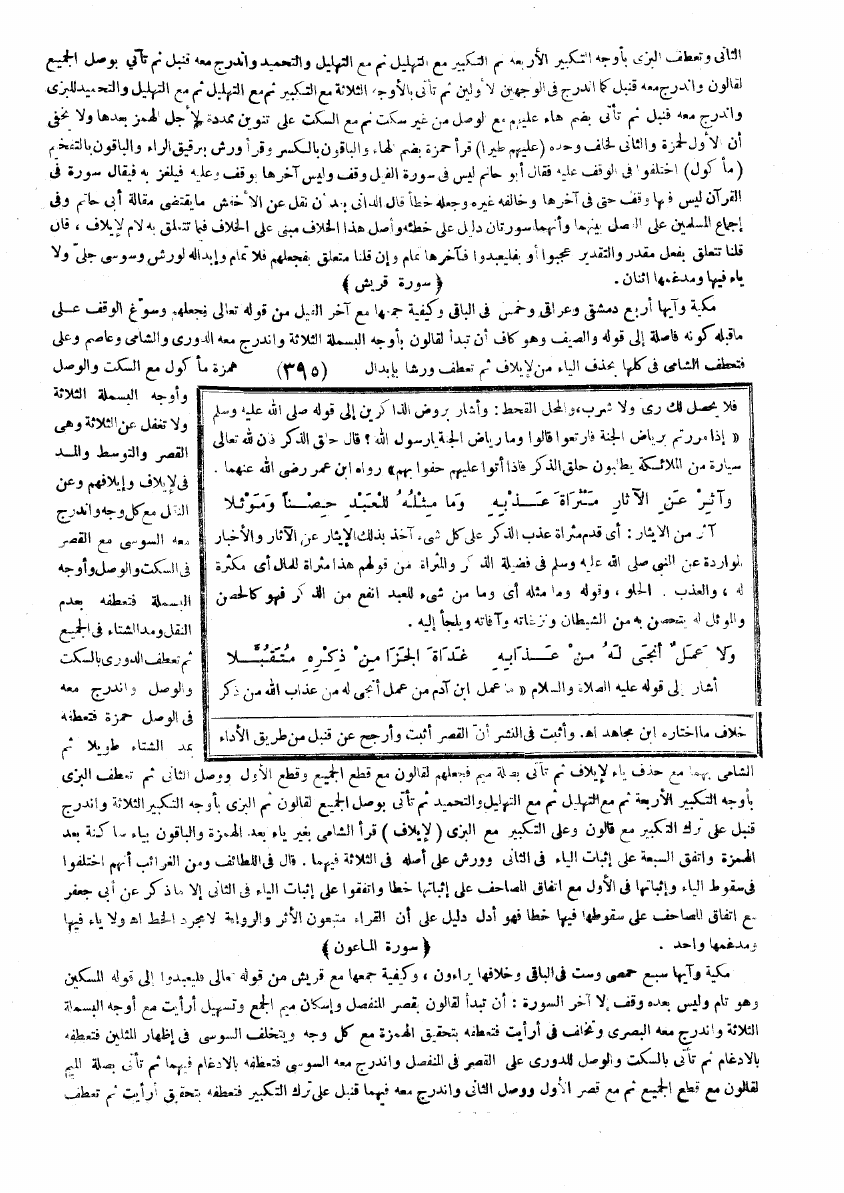 الثانى وتعطف البزى بأوجه التكبير الأربعة ثم التكبير مع التهليل ثم مع التهليل والتحميد واندرج معه قنبل ثم تأتى بوصل الجميع
لقالون واندرج معه قنبل كما اندرج فى الوجهين الأولين ثم تأتى بالأوجه الثلاثة مع التكبير ثم مع التهليل ثم مع التهليل والتحميد للبزى
واندرج معه قنبل ثم تأتى بضم هاء عليهم مع الوصل من غير سكت ثم مع السكت على تنوين ممددة لأجل الهمز بعدها ولا يخفى
أن الأول لحمزة والثانى لخلف وحده (عليهم طيرا) قرأ حمزة بضم الهاء والباقون بالكسر وقرأ ورش بترقيق الراء والباقون بالتفخيم
(مأكول) اختلفوا فى الوقف عليه فقال أبو حاتم ليس فى سورة الفيل وقف وليس آخرها بوقف وعليه فيلغز به فيقال سورة فى
القرآن ليس فيها وقف حتى فى آخرها وخالفه غيره وجعله خطأ قال الدانى بعد أن نقل عن الأخفش ما يقتضى مقالة أبى حاتم وفى
إجماع المسلمين على الفصل بينهما وأنهما سورتان دليل على خطئه وأصل هذا الخلاف مبنى على الخلاف فيما تتعلق به لام لإيلاف ، فان
قلنا تتعلق بفعل مقدر والتقدير عجبوا أو بفليعبدوا فآخرها تمام وإن قلنا متعلق بفجعلهم فلا تمام وإبداله لورش وسوسى جلى ولا
ياء فيها ومدغمها اثنان . ﴿ سورة قريش ﴾
مكية وآيها أربع دمشقى وعراقى وخمس فى الباقى وكيفية جمعها مع آخر الفيل من قوله تعالى فجعلهم وسوّغ الوقف على
ماقبله كونه فاصلة إلى قوله والصيف وهو كاف أن تبدأ لقالون بأوجه البسملة الثلاثة واندرج معه الدورى والشامى وعاصم وعلى
فتعطف الشامى فى كلها بحذف الياء من لإيلاف ثم تعطف ورشا بإبدال (٣٩٥) همزة مأكول مع السكت والوصل
وأوجه البسملة الثلاثة
ولا تغفل عن الثلاثة وهى
القصر والتوسط والمد
فى لإيلاف وإيلافهم وعن
النقل مع كل وجه واندرج
معه السوسى مع القصر
فى السكت والوصل وأوجه
البسملة فتعطفه بعدم
النقل ومد الشتاء فى الجميع
ثم تعطف الدورى بالسكت
والوصل واندرج معه
فى الوصل حمزة فتعطفه
بمد الشتاء طويلا ثم
فلا يحصل لك رى ولا شرب، والمحل القحط : وأشار بروض الذاكرين إلى قوله صلى الله عليه وسلم
« إذا مررتم برياض الجنة فارتعوا قالوا وما رياض الجنة يارسول الله ؟ قال حلق الذكر فان لله تعالى
سيارة من الملائكة يطلبون حلق الذكر فاذا أتوا عليهم حفوا بهم» رواه ابن عمر رضى الله عنهما .
وآثِرْ عَنِ الآثارِ مَثْرَاةَ عَـذْبِهِ وَما مِثْلُهُ للْعَبْدِ حِصْناً وَمَوْئلا
آثر من الايثار : أى قدم مثراة عذب الذكر على كل شىء آخذ بذلك الإيثار عن الآثار والأخبار
الواردة عن النبى صلى الله عليه وسلم فى فضيلة الذكر والمثراة من قولهم هذا مثراة للمال أى مكثرة
له ، والعذب . الحلو ، وقوله وما مثله أى وما من شىء للعبد انفع من الذكر فهو كالحصن
والموئل له يتحصن به من الشيطان ونزغاته وآفاته ويلجأ إليه .
وَلا عَمَلٌ أنْجَى لَهُ مِنْ عَـذَابِهِ غَدَاةَ الجَزَا مِنْ ذِكْرِهِ مُتَقَبَّلا
أشار إلى قوله عليه الصلاة والسلام « ما عمل ابن آدم من عمل أنجى له من عذاب الله من ذكر
خلاف ما اختاره ابن مجاهد اه. وأثبت فى النشر أن القصر أثبت وأرجح عن قنبل من طريق الأداء
الشامى بهما مع حذف ياء لإيلاف ثم تأتى بصلة ميم فجعلهم لقالون مع قطع الجميع وقطع الأول ووصل الثانى ثم تعطف البزى
بأوجه التكبير الأربعة ثم مع التهليل ثم مع التهليل والتحميد ثم تأتى بوصل الجميع لقالون ثم البزى بأوجه التكبير الثلاثة واندرج
قنبل على ترك التكبير مع قالون وعلى التكبير مع البزى (لإيلاف) قرأ الشامى بغير ياء بعد الهمزة والباقون بياء ساكنة بعد
الهمزة واتفق السبعة على إثبات الياء فى الثانى وورش على أصله فى الثلاثة فيهما . قال فى اللطائف ومن الغرائب أنهم اختلفوا
فى سقوط الياء وإثباتها فى الأول مع اتفاق المصاحف على إثباتها خطا واتفقوا على إثبات الياء فى الثانى إلا ما ذكر عن أبى جعفر
مع اتفاق المصاحف على سقوطها فيها خطا فهو أدل دليل على أن القراء متبعون الأثر والرواية لا مجرد الخط اه ولا ياء فيها
ومدغمها واحد . ﴿ سورة الماعون ﴾
مكية وآيها سبع حمصى وست فى الباقى وخلافها يراءون ، وكيفية جمعها مع قريش من قوله تعالى فليعبدوا إلى قوله المسكين
وهو تام وليس بعده وقف إلا آخر السورة : أن تبدأ لقالون بقصر المنفصل وإسكان ميم الجمع وتسهيل أرأيت مع أوجه البسملة
الثلاثة واندرج معه البصرى وتخالف فى أرأيت فتعطفه بتحقيق الهمزة مع كل وجه ويتخلف السوسى فى إظهار المثلين فتعطفه
بالادغام ثم تأتى بالسكت والوصل للدورى على القصر فى المنفصل واندرج معه السوسى فتعطفه بالادغام فيهما ثم تأتى بصلة الميم
لقالون مع قطع الجميع ثم مع قصر الأول ووصل الثانى واندرج معه فيهما قنبل على ترك التكبير فتعطفه بتحقيق أرأيت ثم تعطف